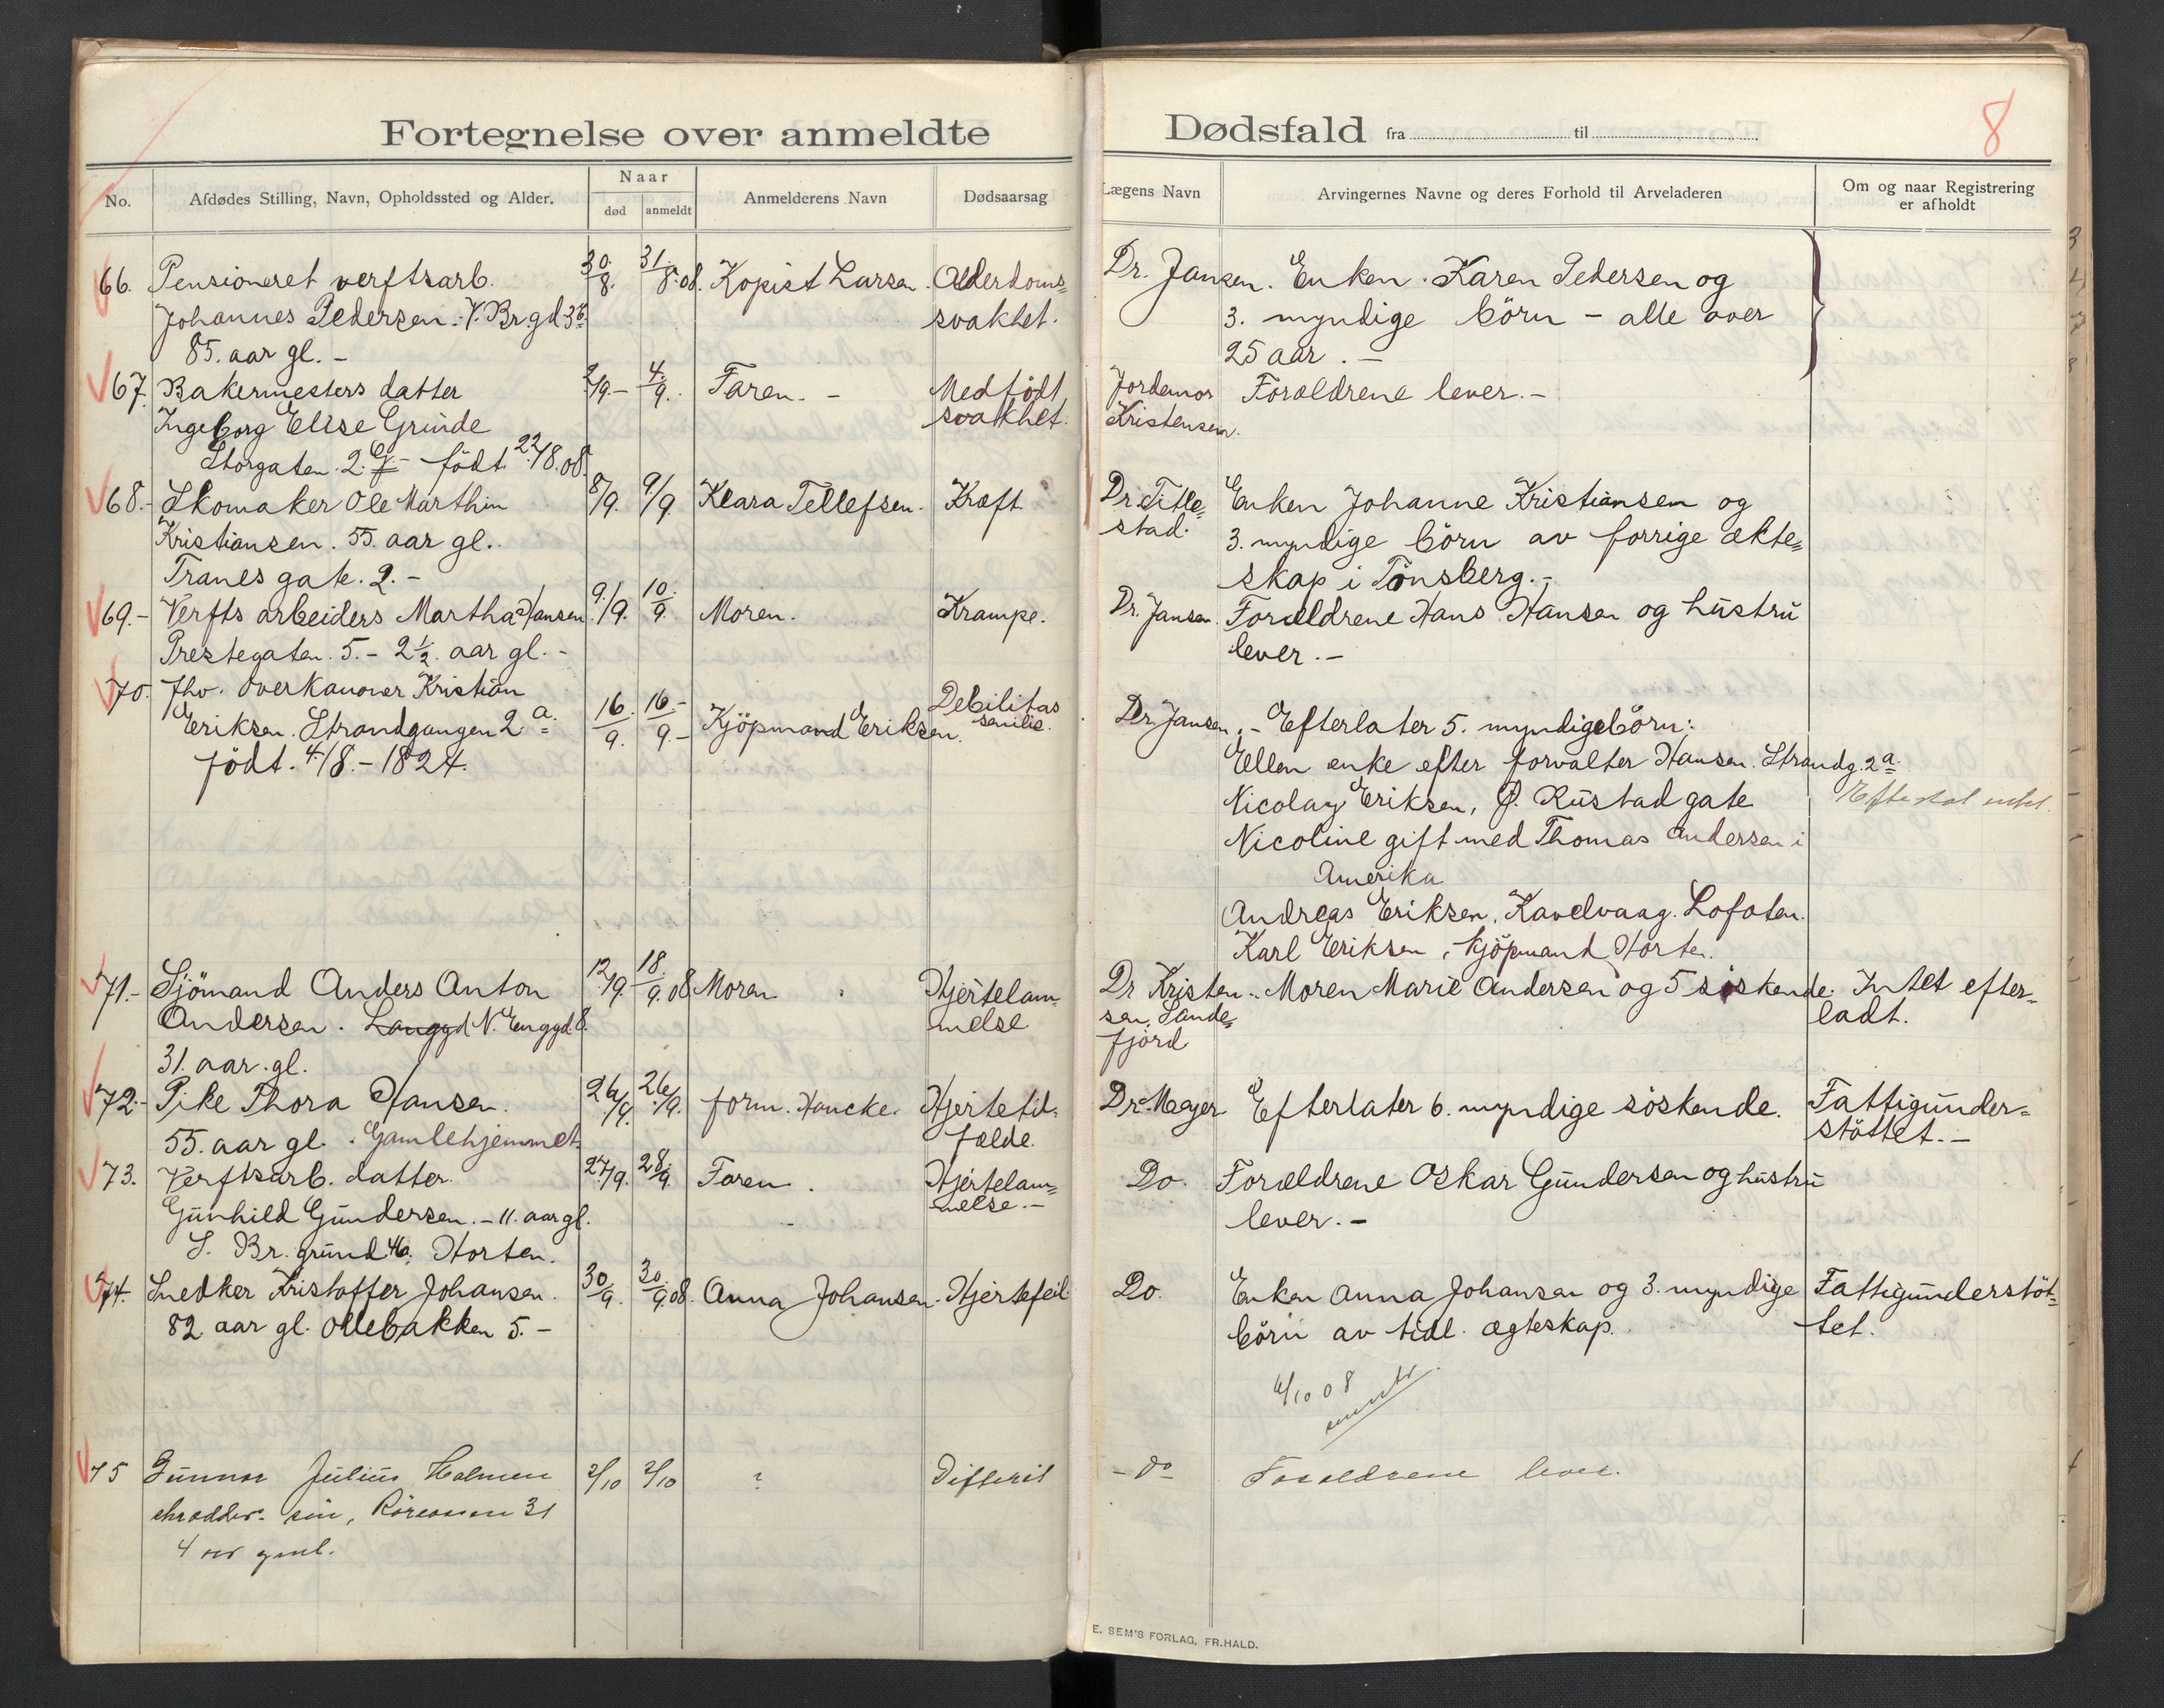 Fortegnelse over anmeldte Dødsfald fra til
8
No.
Afdødes Stilling, Navn, Opholdssted og Alder.
Naar
død
anmeldt
Anmelderens Navn
Dødsaarsag
Lægens Navn
Arvingernes Navne og deres Forhold til Arveladeren
Om og naar Registrering
er afholdt
66. Pensioneret verftsarb. 30/8. 31/8.08. Kopist Larsen. Alderdoms= Dr. Jansen. Enken. Karen Pedersen og
Johannes Pedersen. V. Br.gd 36 svakhet. 3. myndige börn - alle over
85. aar gl. - 25 aar. -
67. Bakermesters datter 2/9.- 4/9. Faren. - Medfödt Jordemor Forældrene lever. -
Ingeborg Elise Grinde svakhet. Kristensen.
Storgaten. 2. - födt 22/8.08.
68.- Skomaker Ole Marthin 8/9. 9/9 Klara Tellefsen. Kræft Dr. Title= Enken Johanne Kristiansen og
Kristiansen. 55. aar gl. stad. 3. myndige börn av forrige ækte=
Tranes gate. 2. - skap i Tönsberg. -
69.- Verfts arbeiders Martha Hansen 9./9. 10./9. Moren. Krampe. Dr. Jansen. Forældrene Hans Hansen og hustru
Prestegaten. 5. - 2½. aar gl. - lever. -
70. fhv. overkanoner Kristian Debilitas
Eriksen. Strandgangen 2 a. 16/9. 16/9.- Kjöpmand Eriksen. senilis. Dr. Jansen. - Efterlater 5. myndige börn:
födt. 4/8. - 1824. Ellen enke efter forvalter Hansen. Strandg. 2 a.
Nicolay Eriksen, P. Rustad gate
Nicoline gift med Thomas Andersen i
Amerika
Andreas Eriksen, Kavelvaag. Lofoten.
Karl Eriksen, kjöpmand Horten.
71.- Sjömand Anders Anton 12./9. 18./9.08 Moren Hjertelam= Dr Kristen= Moren Marie Andersen og 5 söskende. Intet efter=
Andersen. Langgd N. Enggd 8. melse sen, Sande= ladt.
31. aar. gl. fjord
72.- Pike Thora Hansen. 26/9. 26./9. form. Hancke. Hjertetil= Dr. Meyer. Efterlater 6. myndige söskende. Fattigunder=
55. aar gl. Gamlehjemmet fælde. stöttet. -
73. Verftsarb. datter 27./9. 28./9. Faren. Hjertelam= Do. Forældrene Oskar Gundersen og hustru
Gunhild Gundersen. - 11. aar gl. melse. - lever. -
S. Br. grund 4a. Horten.
74. Snedker Kristoffer Johansen. 30/9. 30./9.08. Anna Johansen. Hjertefeil Do. Enken Anna Johansen og 3. myndige Fattigunderstöt=
82. aar gl. Ollebakken 5. - börn av tidl. ægteskap. tet.
6/10 08
75 Gunnar Julius Holmen 2/10 2/10 ? Difterit - do Forældrene lever.
skrædder sön, 31
4 aar gml.
E. SEM'S FORLAG, FR.HALD.